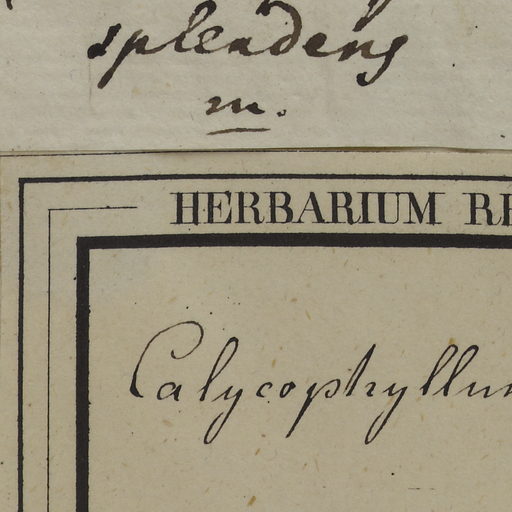 splendens
m.
HERBARIUM RE
Calycophyllum